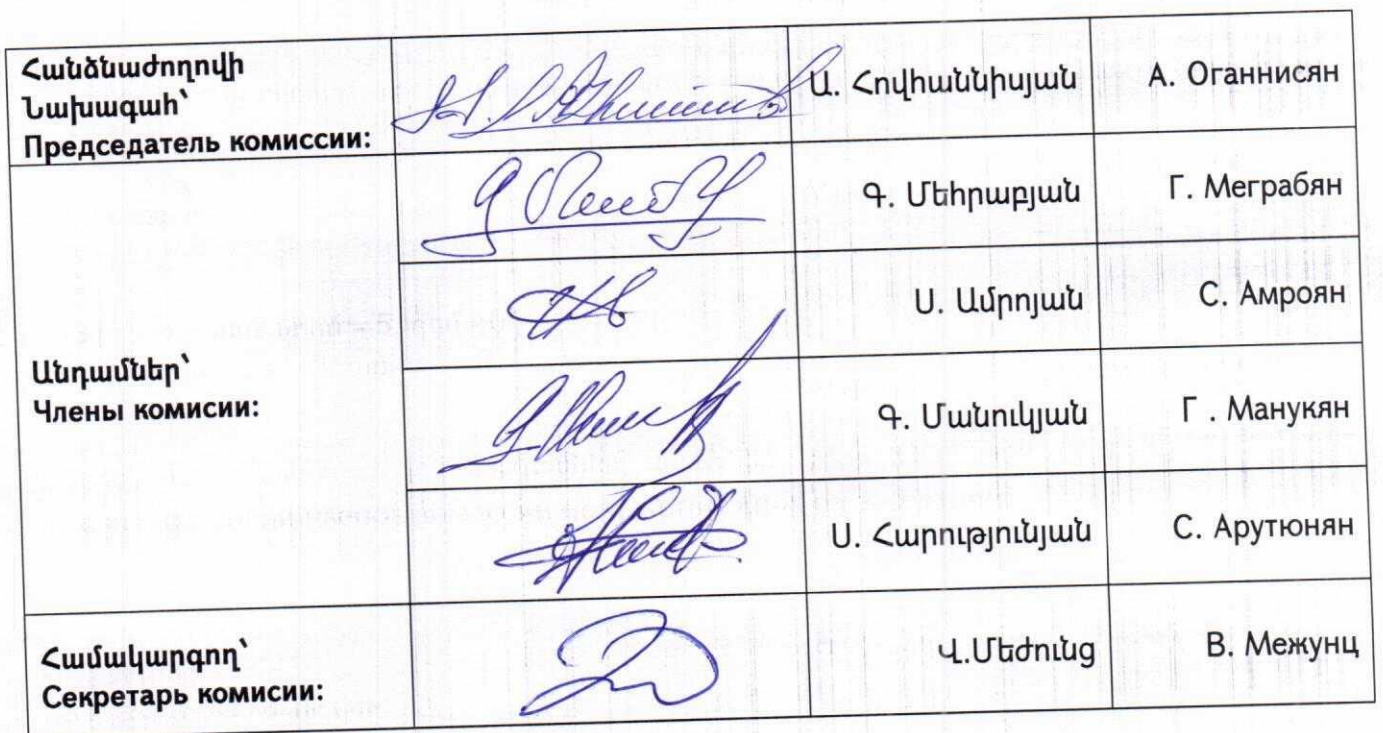 Հանձնաժողովի
Նախագահ՝
Председатель комиссии:
Ա. Հովհաննիսյան
А. Оганнисян
Անդամներ՝
Члены комисии:
Գ. Մեհրաբյան
Г. Меграбян
Ս. Ամրոյան
С. Амроян
Գ. Մանուկյան
Г . Манукян
Ս. Հարությունյան
С. Арутюнян
Համակարգող՝
Секретарь комисии:
Վ.Մեժունց
В. Межунц